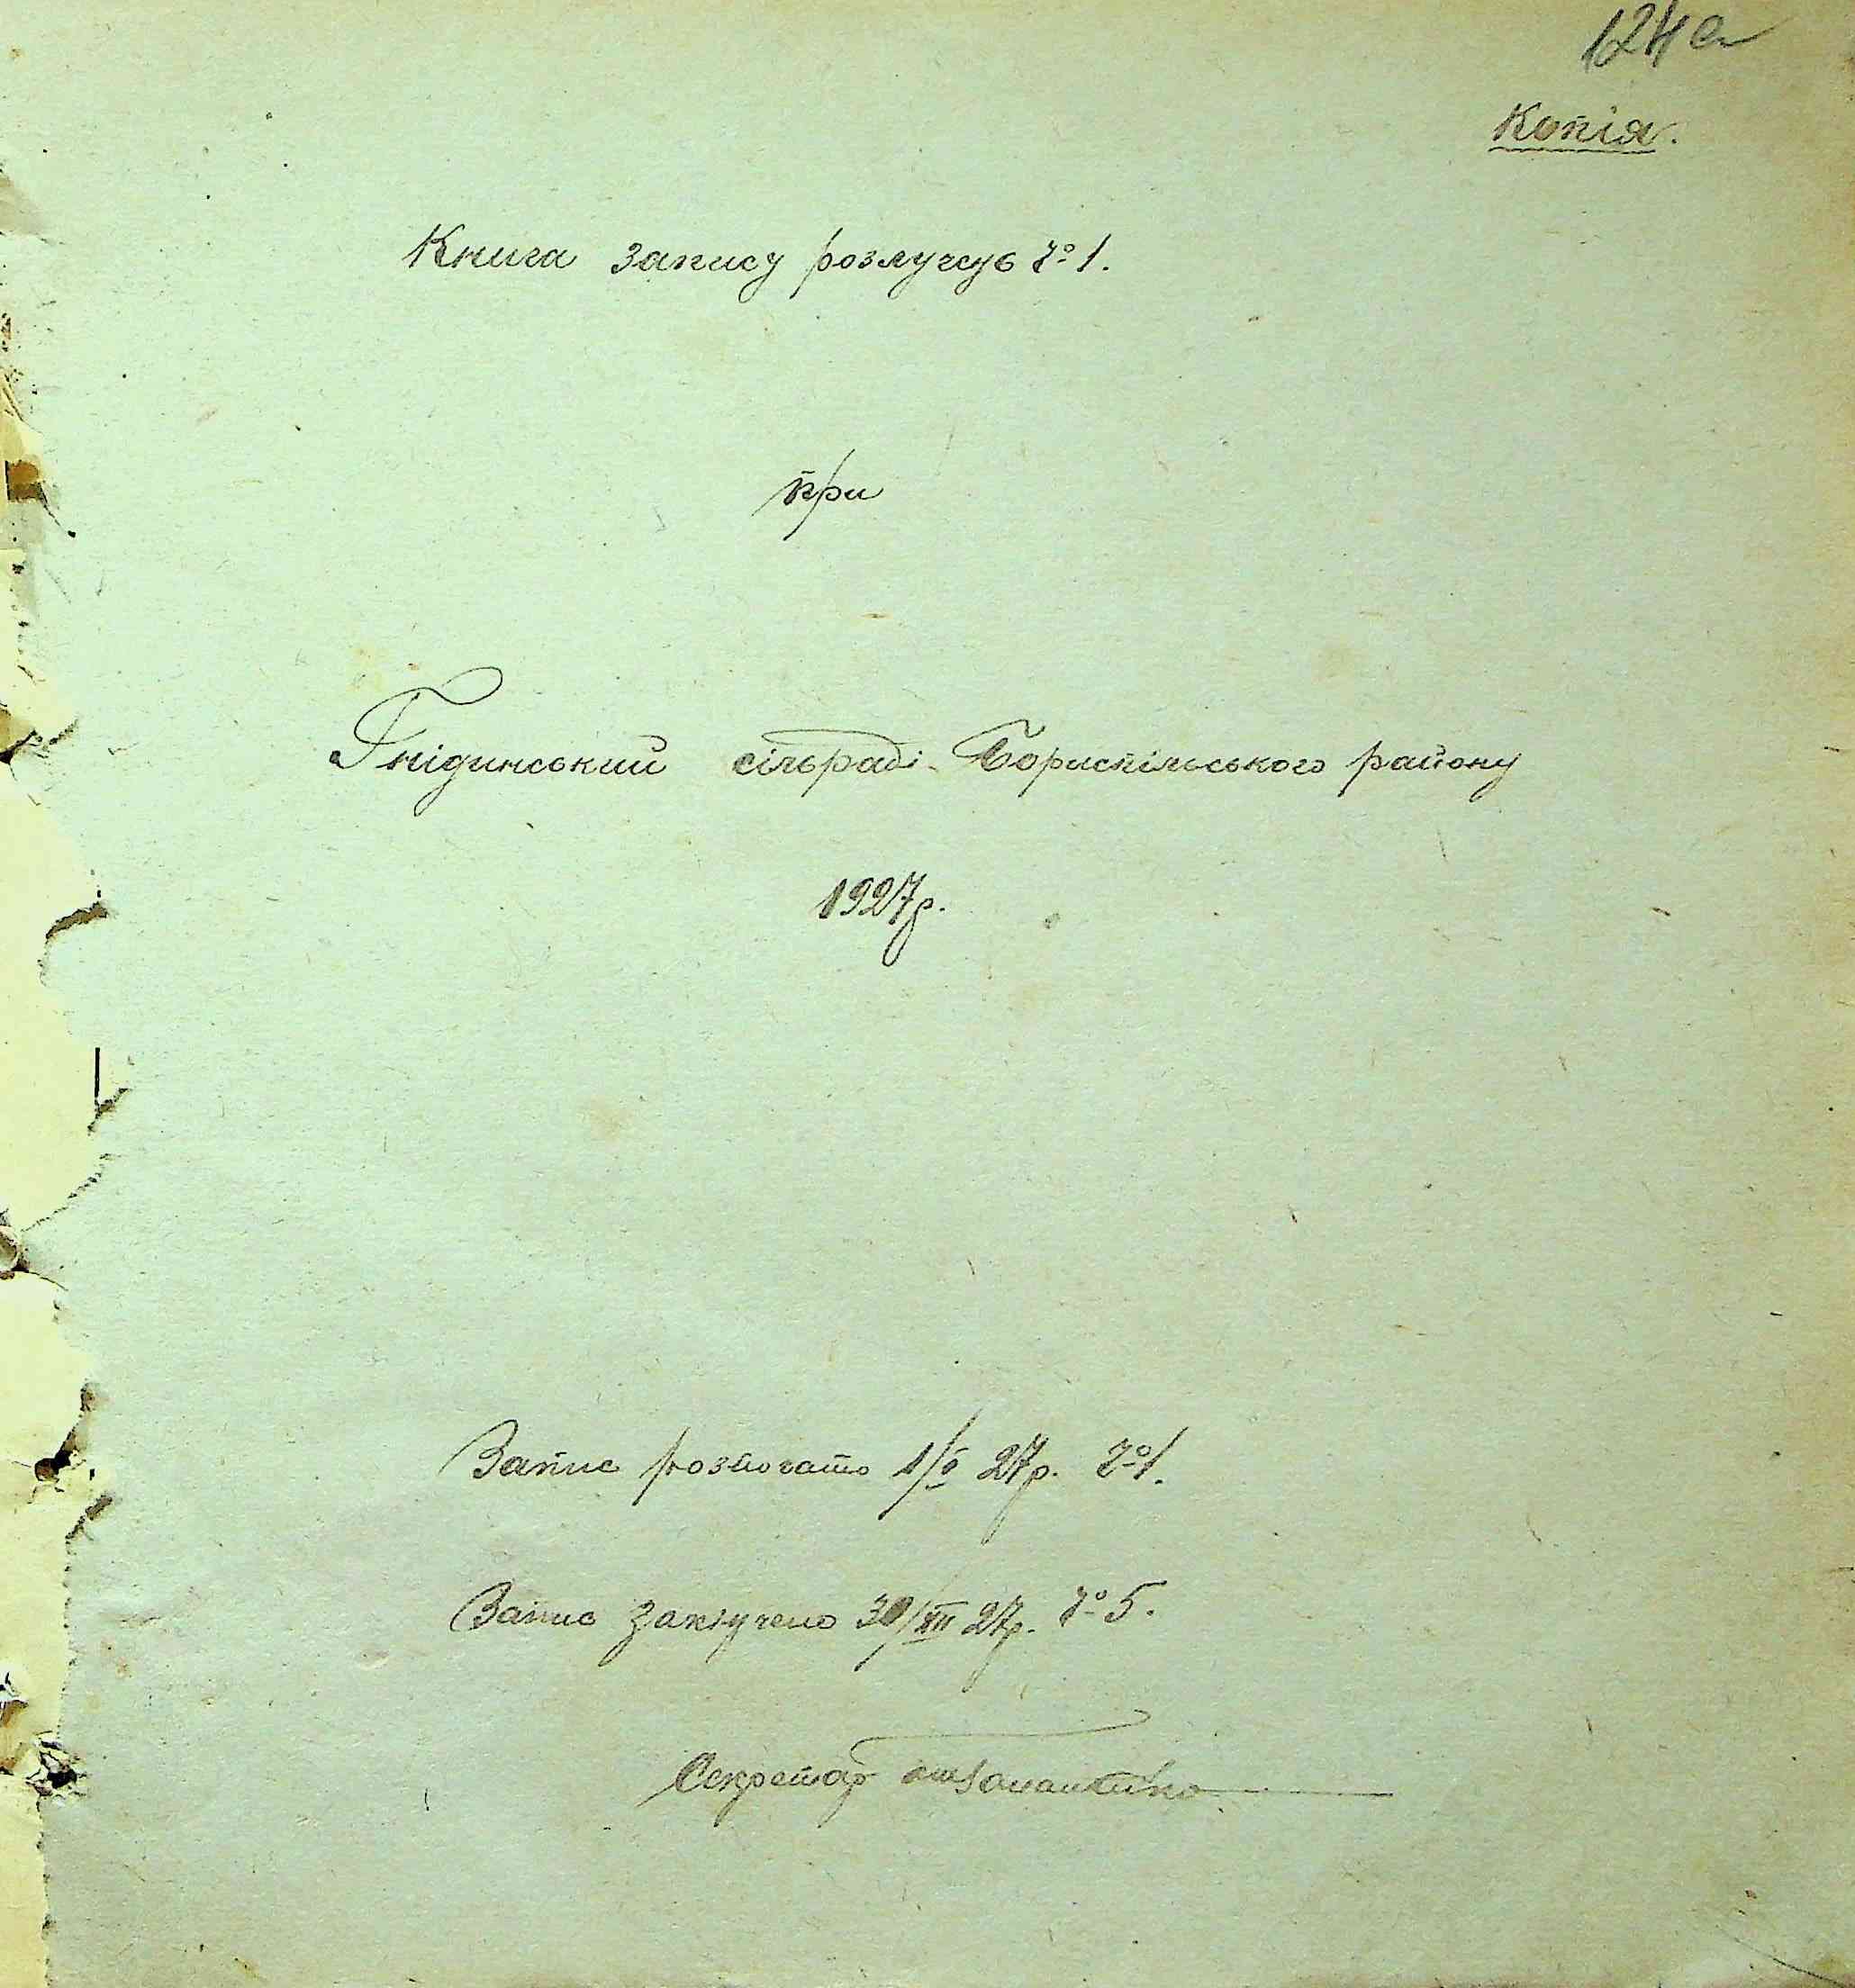 124а
Копія.
Книга запису розлучув № 1.
при
Гнідинський сільраді Бориспільського району
1927р.
Запис розпочато 1/ 27р. № 1.
Запис заключено 30/XII 27р. № 5.
Секретар